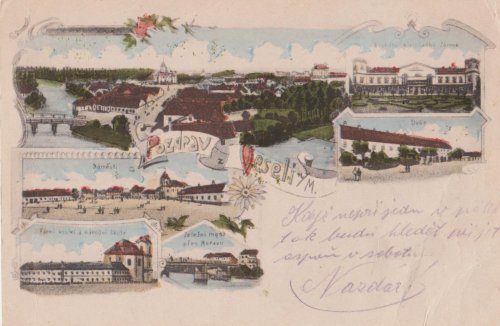 Pozdrav
z
Veselí n/M.
Dvůr
Náměstí
Farní kostel a národní škola
Železný most
přes Moravu
Když nepřijedu v pátek
tak budu hledět přijet
aspoň v sobotu.
Nazdar